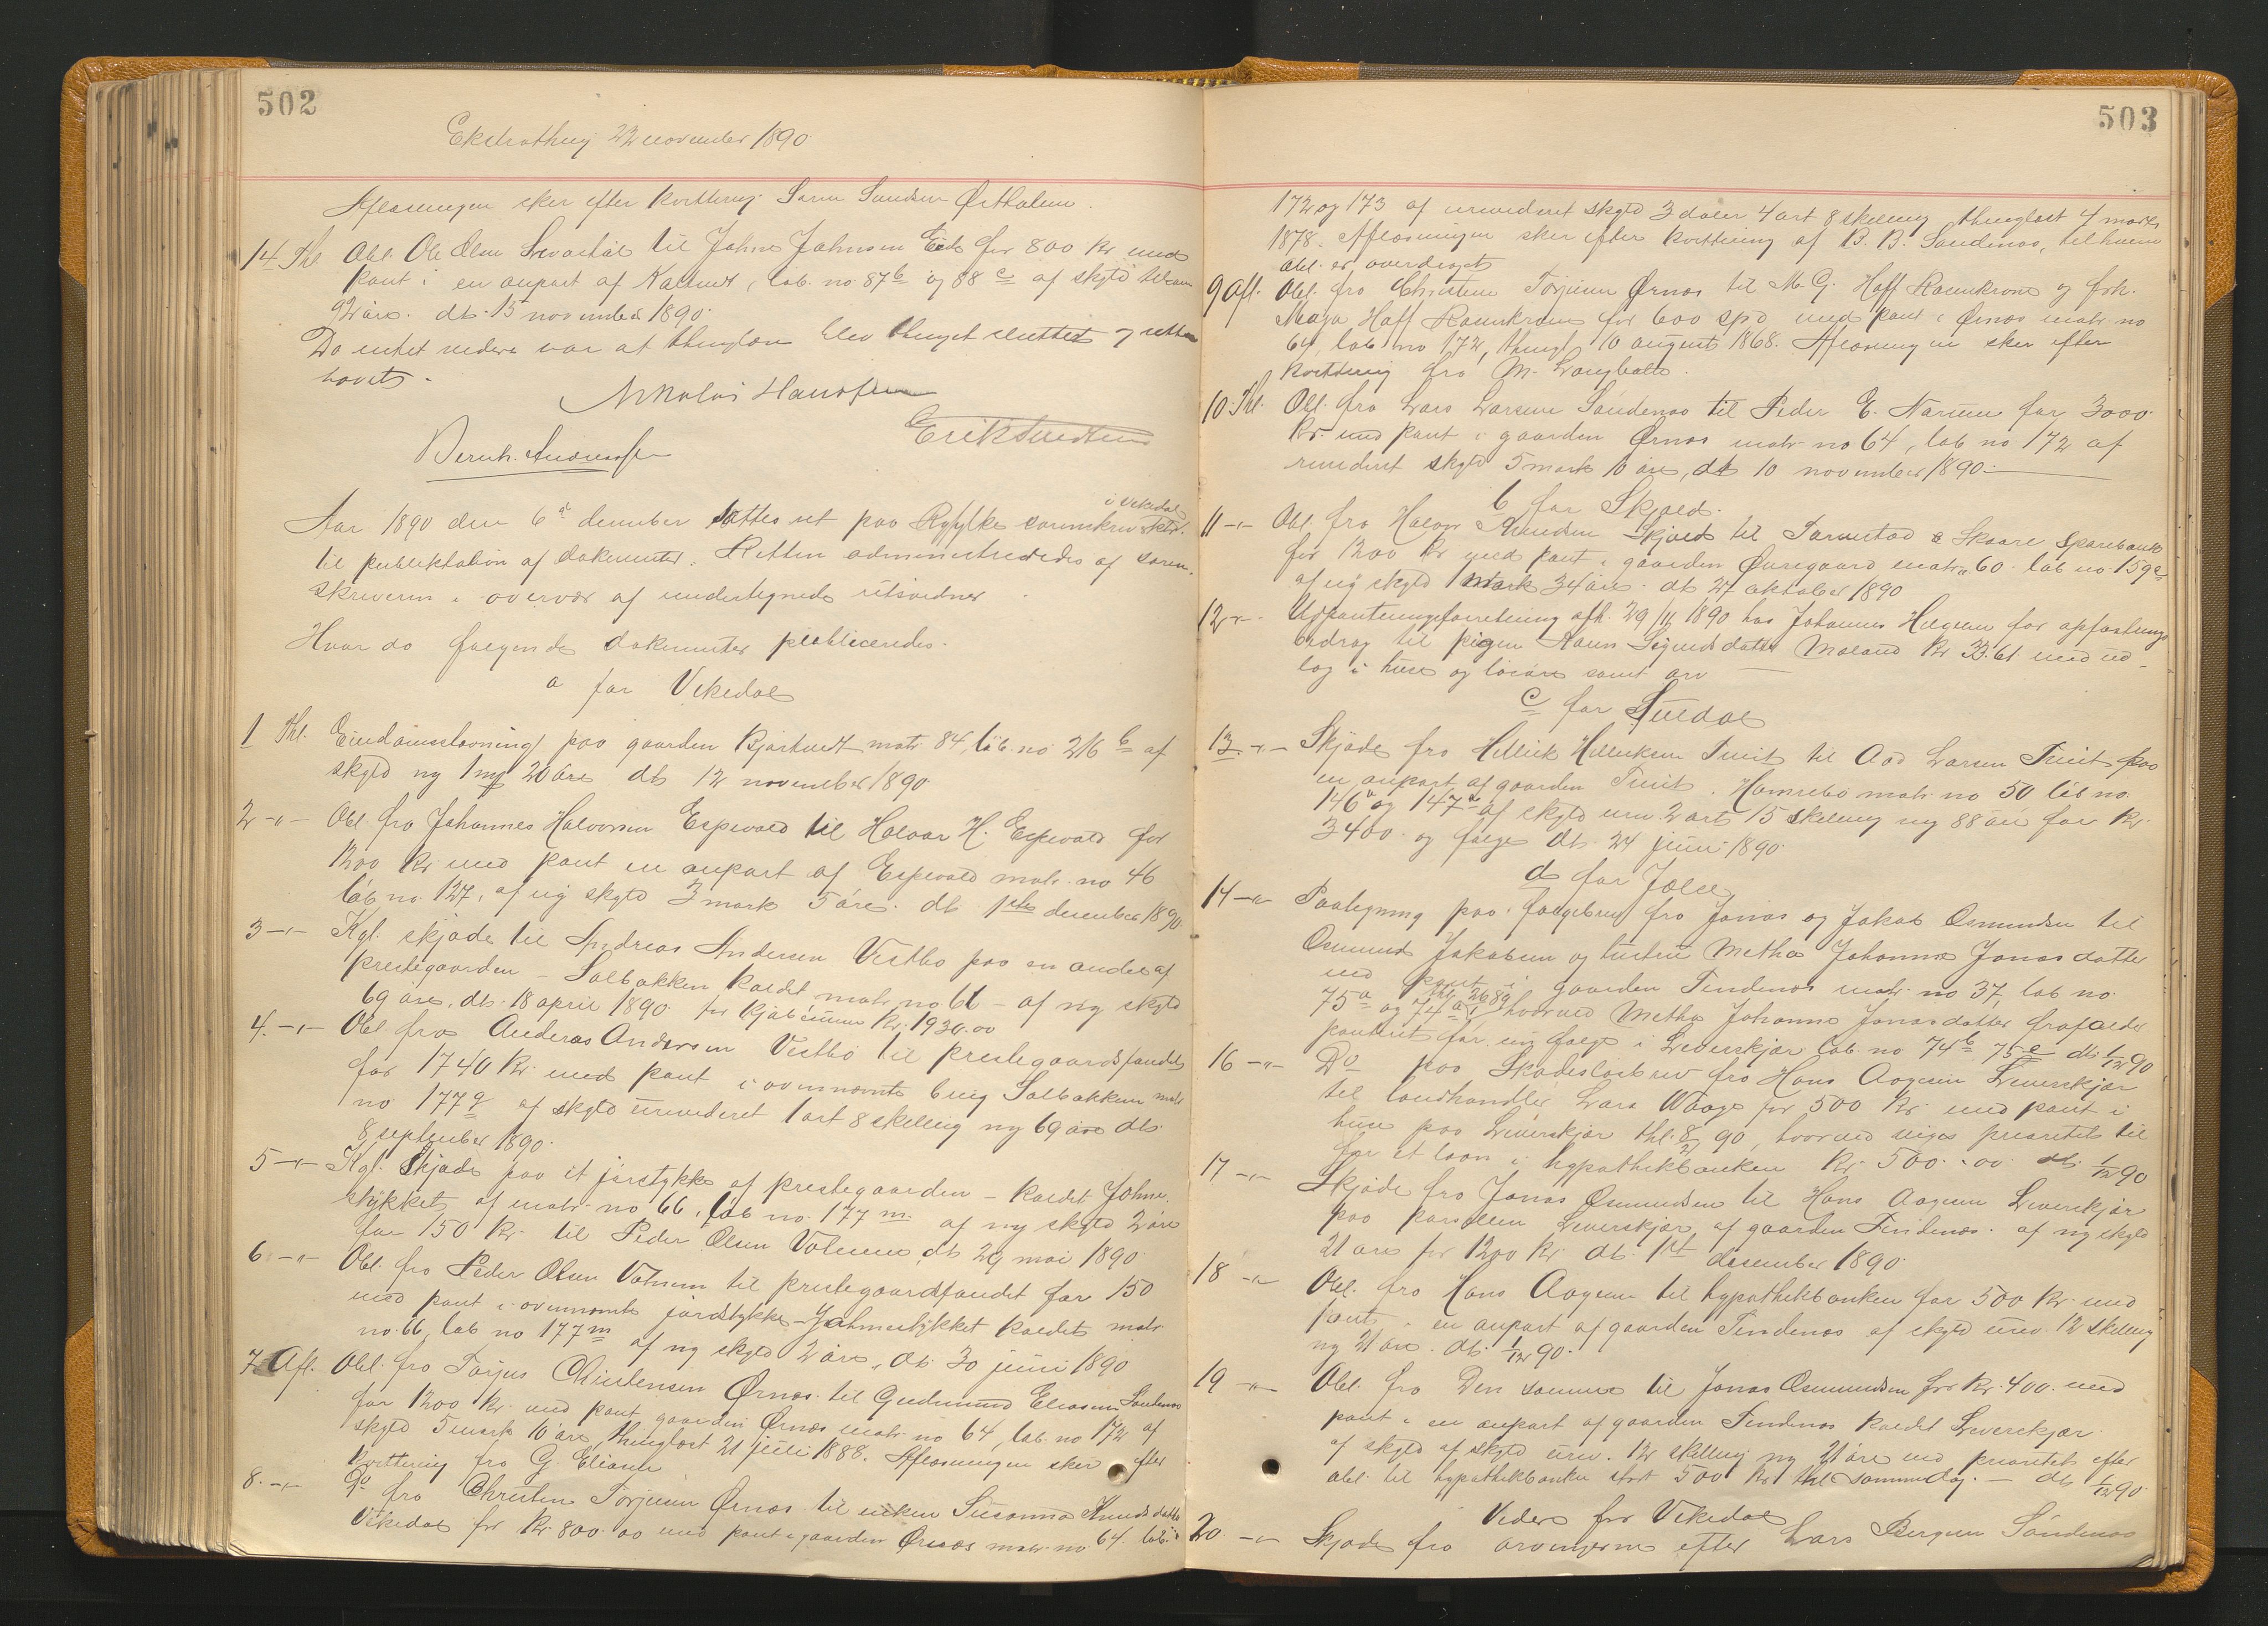 502
Ekstrathing 22 november 1890.
Aflæsningen sker efter kvittering
14 Thl Obl. Ole Olsen til Johns Johnsen Eide for 800 kr. med
pant i en anpart af løb. no 87b og 88c af skyld
92 øre. dt. 15 november 1890.
Da intet videre var at thinglæse blev thinget sluttet og retten
hævet.
Nikolai Hanssen
Aar 1890 den 6te december sattes ret paa Ryfylke sorenskriverktr.
i Vikedal
til publiktation af dokumenter. Retten administreredes af soren-
skriveren i overvær af undertegnede retsvidner
Hvor da følgende dokumenter publiceredes.
a for Vikedal
1 Thl. paa gaarden matr 84, løb. no 216b af
skyld ny 1 mk 20 øre dt 12 november 1890.
2 -"- Obl. fra Johannes Halvorsen Espevold til Halvor H. Espevold for
1200 kr med pant en anpart af Espevold matr. no 46
løb no. 127, af ny skyld 3 mark 5 øre. dt 1ste december 1890.
3 -"- Kgl. skjøde til Andreas Andersen Vestbø paa en andel af
prestegaarden - Solbakken kaldet matr. no 66 - af ny skyld
69 øre. dt. 18 april 1890 for kjøbesum kr. 1930.00
4. -"- Obl. fra Anderas Andersen Vestbø til prestegaardsfondet
for 1740 kr. med pant i ovennævnte brug Solbakken matr
no 177q af skyld urevideret 1 ort 8 skelling ny 69 øre dt.
8 september 1890.
5 -"- Kgl. Skjøde paa et jorstykke af prestegaarden - kaldet Johns
stykket af matr. no 66, løb no. 177m. af ny skyld 2 øre
for 150 kr. til Peder Olsen dt 29 mai 1890
6 -"- Obl. fra Peder Olsen til prestegaardsfondet for 150
med pant i ovennævnte jordstykke - Johnsstykket kaldet matr
no. 66, løb no 177m af ny skyld 2 øre. dt. 30 juni 1890
7 Afl. Obl. fra Torjus Christensen Ørnes til Gudmund Eliasen Søndenaa
for 1200 kr. med pant gaarden Ørnes matr. no 64, løb. no 172 af
skyld 5 mark 10 øre, thinglæst 21 juli 1888. Aflæsningen sker efter
kvittering fra G. Eliasen
8. -"- Do fra Christen Torjusen Ørnes til enken Susanna Knudsdatter
Vikedal for kr. 800.00 med pant i gaarden Ørnes matr. no 64. løb.
503
172 og 173 af urevideret skyld 3 daler 4 ort 8 skelling thinglæst 4 marts
1878. Aflæsningen sker efter kvittering af B. B. Søndenaa, til hvem
obl. er overdraget
9 Afl. Obl. fra Christen Torjusen Ørnes til M. G. Hoff Rosenkrone og frk.
Maja Hoff Rosenkrone for 600 spd med pant i Ørnes matr no
64, løb no 172, thingl. 10 august 1868. Aflæsningen sker efter
kvittering fra M.
10. Thl. Obl. fra Lars Larsen Søndenaa til Peder E. for 3000
kr. med pant i gaarden Ørnes matr no 64, løb no 172 af
revideret skyld 5 mark 10 øre, dt 10 november 1890.
b for Skjold.
11 -"- Obl. fra Halvor Skjold til & Skaare Sparebank
for 1200 kr med pant i gaarden matr. 60. løb no. 159
af ny skyld 1 mark 34 øre. dt 27 oktober 1890
12 -"- Udpantningsforretning afh. 29/11 1890 hos Johannes Helgesen for opfostrings
bidrag til pigen Sigurdsdatter kr 33.61. med ud-
læg i huse og løsøre samt
c for Suldal
13. -"- Skjøde fra Hellik Helliksen Tveit til Aad Larsen Tveit paa
en anpart af gaarden Tveit. Hamrebø matr. no 50 løb no.
146a og 147a af skyld urev. 2 ort 15 skelling ny 88 øre for kr.
3400. og følge dt. 24 juni 1890.
d for Jelse
14 -"- Paategning paa følgebrev fra Jonas og Jakob Osmundsen til
Osmund Jakobsen og hustru Metha Johanna Jonasdatter
med pant i gaarden Tindenes matr. no 37, løb no.
75a og 74a hvorved Metha Johanne Jonasdatter frafalder
panteret for sin følge i Leverskjær løb. no 74b 75e dt. 1/12 90
16 -"- Do paa Skadesløsbrev fra Hans Aagesen Leverskjær
til landhandler Lars Waage for 500 kr. med pant i
huse paa Leverskjær thl. 90, hvorved viges prioritet til
for et laan i hypothekbanken kr. 500.00 dt. 1/12 90
17 -"- Skjøde fra Jonas Osmundsen til Hans Aagesen Leverskjær
paa parsellen Leverskjær, af gaarden Tindenes. af ny skyld
21 øre for 1200 kr. dt. 1st december 1890.
18 -"- Obl. fra Hans Aagesen til hypothekbanken for 500 kr. med
pant i en anpart af gaarden Tindenes af skyld urev. 12 skelling
ny 21 øre. dt. 1/12 90.
19 -"- Obl. fra Den samme til Jonas Osmundsen for kr. 400. med
pant i en anpart af gaarden Tindenes kaldet Leverskjær.
af skyld af skyld urev. 12 skelling ny 21 øre med prioritet efter
obl. til hypothekbanken stor 500 kr. thl. sammedag. - dt 1/12 90.
Videre for Vikedal
20. -"- Skjøde fra arvingerne efter Lars Bergesen Søndenaa